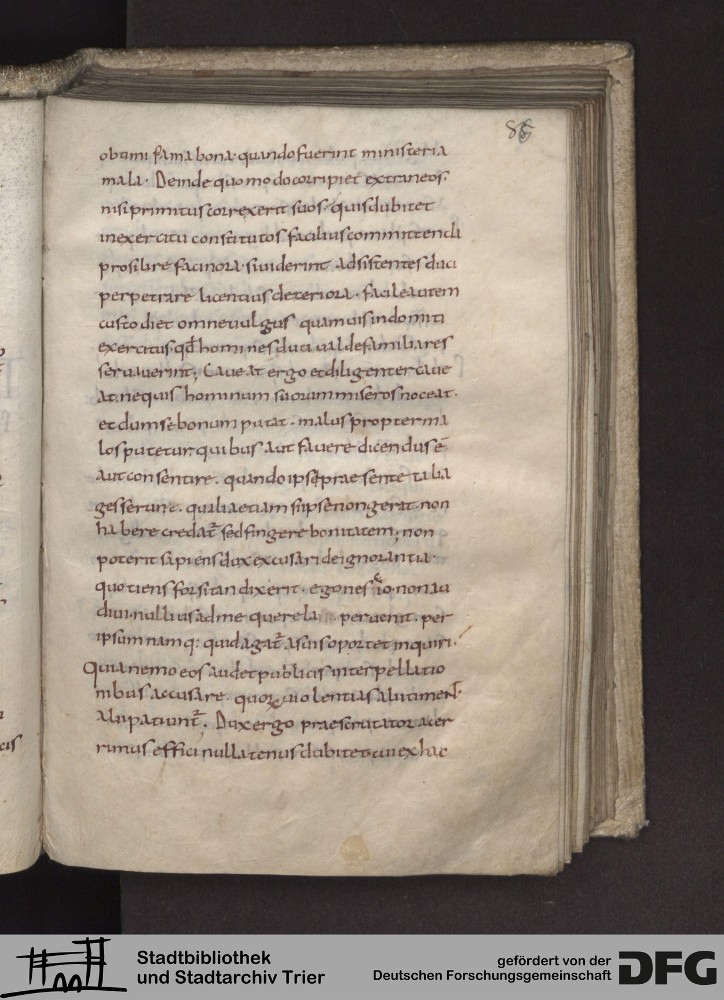 86
obtimi fama bona· quando fuerint ministeria
mala· Deinde quomodo corripiet extraneos·
nisi primitus correxerit suos· quis dubitet
in exercitu constitutos facilius committendi
prosilire facinora· si uiderint adsistentes duci
perpetrare licentius deteriora· facile autem
custodiet omne uulgus quamuis indomiti
exercitus· qđ homines duci ualde familiares
seruauerint; Caueat ergo et diligenter caue
at· ne quis hominum suorum miseros noceat·
et dum se bonum putat· malus propter ma
los putetur quibus aut fauere dicendus ē
aut consentire· quando ipse praesente talia
gesserunt· qualia etiam si ipse non gerat· non
habere credat̄ sed fingere bonitatem; non
poterit sapiens dux excusari de ignorantia·
quotiens forsitan dixerit· ego nescio· non au
diui· nullius ad me querela peruenit· per
ipsum namq: quid agat̄ a suis oportet inquiri·
Quia nemo eos audet publicis interpellatio
nibus accusare· quoꝝ uiolentias
alii patiunt̄· Dux ergo praescrutator acer
rimus effici nullatenus dubitet· cui ex hac
cis
Stadtbibliothek
und Stadtarchiv Trier
gefördert von der
Deutschen Forschungsgemeinschaft
DFG